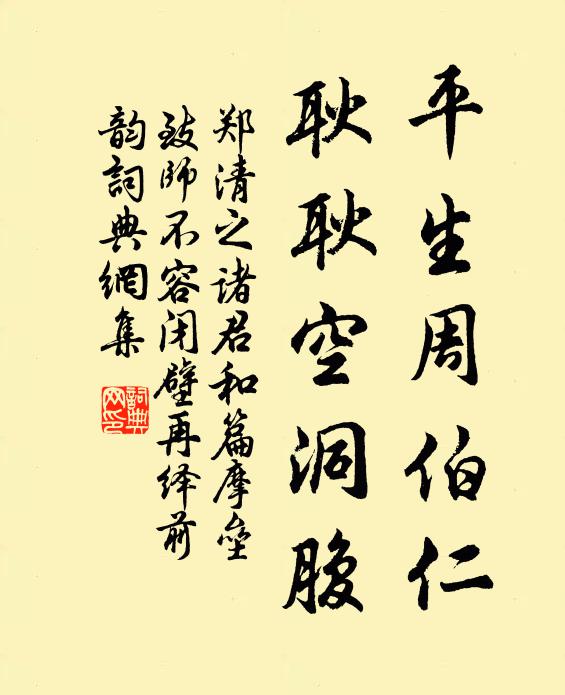 平生周伯仁
耿耿空洞腹
郑清之诸君和篇摩垒
致师不容闭壁再绎前
韵詞典網集
詞典
网印